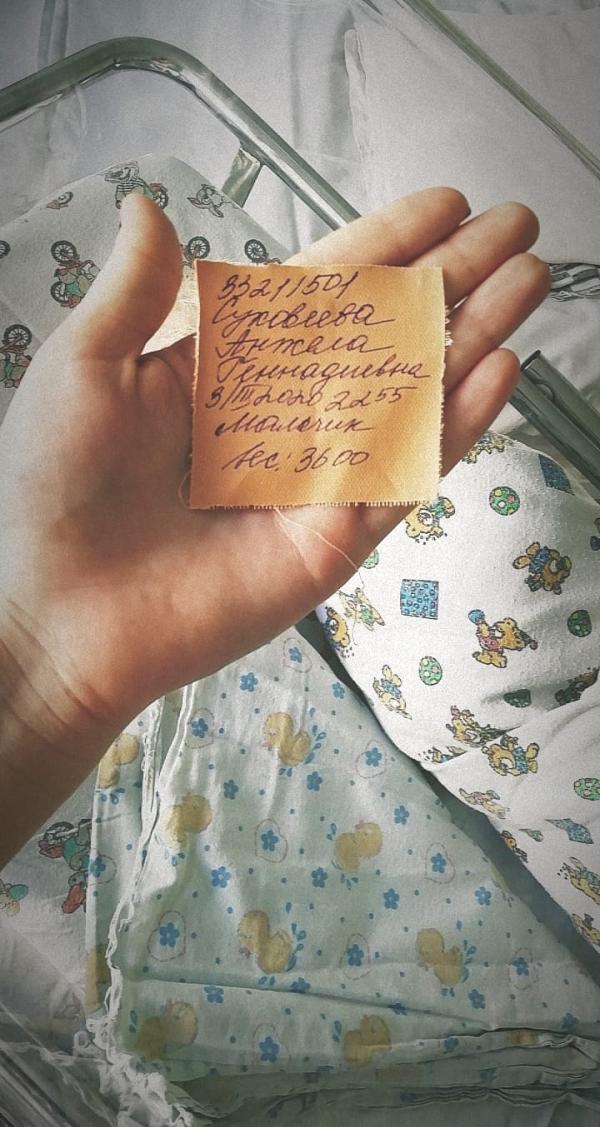 33211501
Суковеева
Анжела
Геннадиевна
3/III 2020 22 55
Мальчик
вес: 3600